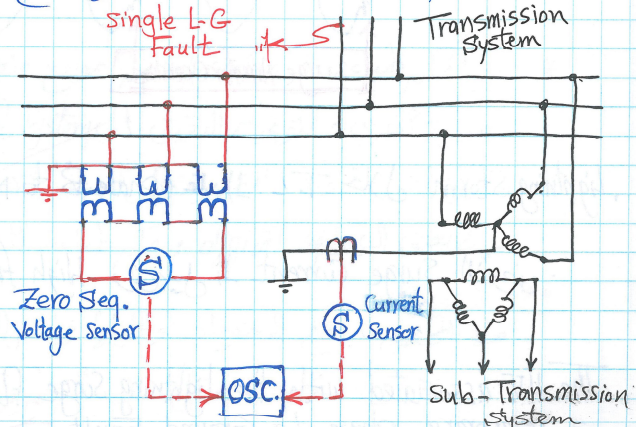 Single L-G
Fault
Transmission
System
S
Zero Seq.
Voltage Sensor
S
Current
Sensor
OSC.
Sub-Transmission
System